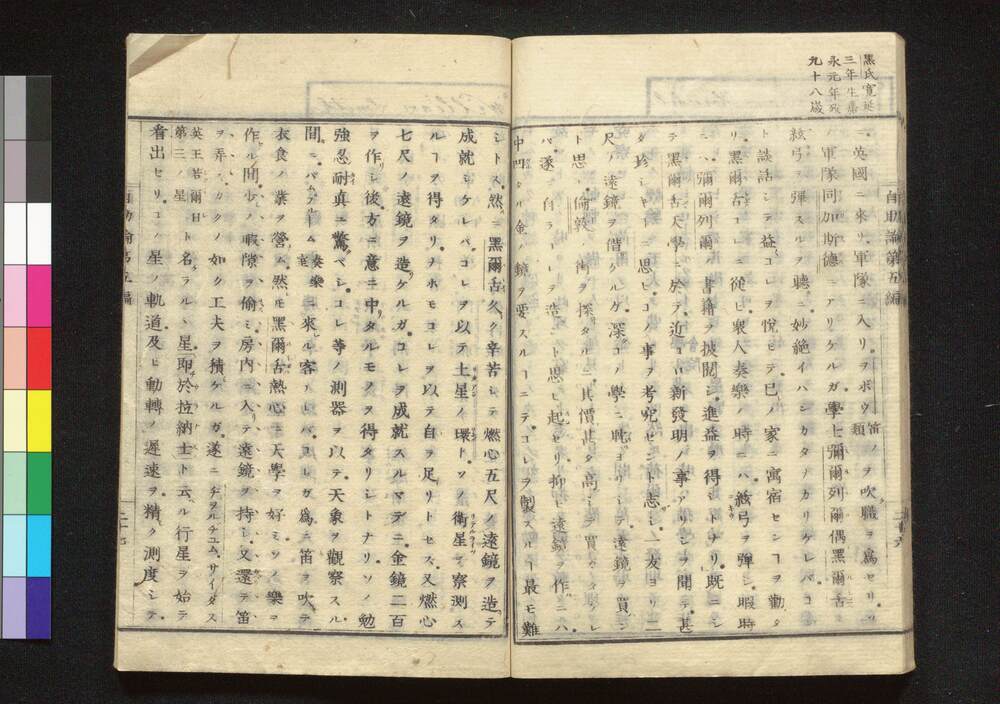 黒氏寛延
三年生嘉
永元年死
九十八歳
ニ英國ニ來リ軍隊ニ入リヲボウ笛類ノヲ吹職ヲ爲セリ
ノ軍隊同加斯德ニアリケルガ學士彌爾列爾偶黒爾舌ガ
絃弓ヲ彈スルヲ聽ニ妙絶イハンカタナカリケレバコレ
ト談話シテ益コレヲ悅ビテ己ノ家ニ寓宿センヿヲ勸タ
リ黒爾舌コレニ從ヒ衆人奏樂ノ時ニハ絃弓ヲ彈シ暇時
ニハ彌爾列爾ノ書籍ヲ披閲シ進益ヲ得シトナリ既ニシ
テ黒爾舌天學ニ於テ近コロ新發明ノ事アリシヲ聞テ甚
ダ珍シキヿニ思ヒコノ事ヲ考究セント志シ一友ヨリ二
尺ノ遠鏡ヲ借ケルガ深コノ學ニ耽ヨリシテ遠鏡ヲ買ン
ト思ヒ倫敦ノ街ヲ探タルニ其價甚タ高シテ買ガタケレ
バ遂ニ自ラコレヲ造ント思ヒ起セリ抑ヒ遠鏡ヲ作ニハ
中凹タル金ノ鏡ヲ要スルヿニテコレヲ製スルヿ最モ難
シトス然ニ黒爾舌久ク辛苦シテ燃心五尺ノ遠鏡ヲ造テ
成就シケレバコレヲ以テ土星ノ環トソノ衛星ヲ察測ス
ルヿヲ得タリナホモコレヲ以テ自ラ足リトセス又燃心
七尺ノ遠鏡ヲ造ケルガコレヲ成就スルマデニ金鏡二百
ヲ作シ後方ニ意ニ中タルモノヲ得タリシトナリソノ勉
強忍耐真ニ驚ベシコレ等ノ測器ヲ以テ天象ヲ觀察スル
間ニパムプルーム奏樂室ニ來ル客アレバコレガ爲ニ笛ヲ吹テ
衣食ノ業ヲ營ム然モ黒爾舌熱心ニ天學ヲ好ミソノ樂ヲ
作ル間少ノ暇隙ヲ偷ミ房内ニ入テ遠鏡ヲ持シ又還テ笛
ヲ弄スカクノ如ク工夫ヲ積ケルガ遂ニヂヲルヂユム、サイダス
英王若爾日第三ノ星ト名ラル、星即於拉納士ト云ル行星ヲ始テ
看出セリコノ星ノ軌道及ヒ動轉ノ遲速ヲ精ク測度シテ
自助論第五編
自助論第五編